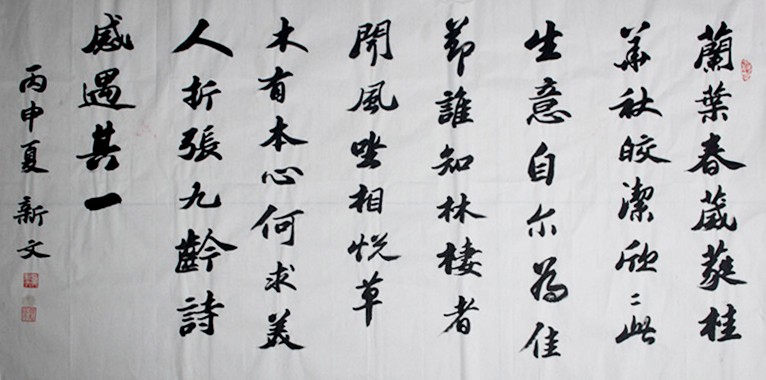 蘭葉春葳蕤桂
華秋皎潔欣〻此
生意自尓為佳
節誰知林棲者
聞風坐相悅草
木有本心何求美
人折張九齡詩
感遇其一
丙申夏新文